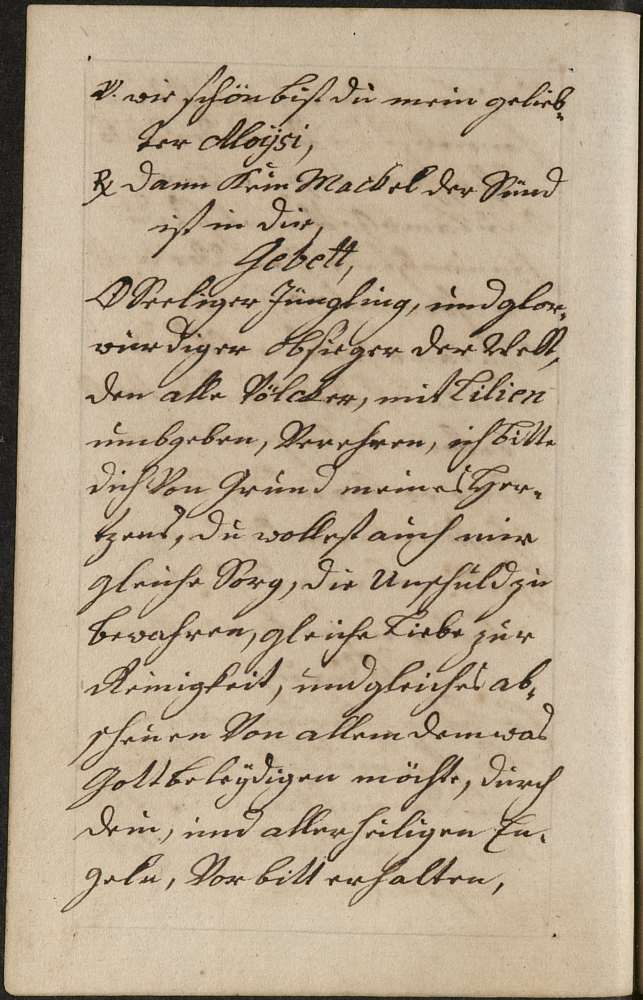 ℣. wie schön bist du mein gelieb-
ter Aloÿsi,
℟ dann Kein Mackel der Sünd
ist in dir,
Gebett,
O Seeliger Jüngling, und glor-
würdiger Obsieger der Welt,
den alle Völcker, mit Lilien
umbgeben, Verehren, ich bitte
dich Von Grund meines Her-
tzens, du wollest auch mir
gleiche Sorg, die Unschuld zu
bewahren, gleiche Liebe zur
Reinigkeit, und gleiches ab-
scheuen Von allem dem was
Gott beleÿdigen möchte, durch
dein, und allerheiligen En-
geln, Vorbitt erhalten,